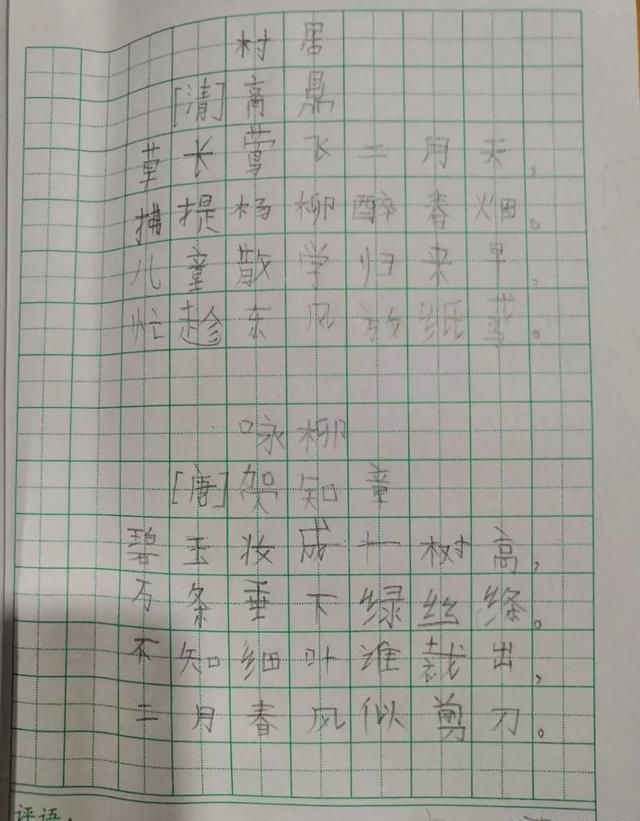 村居
[清]高鼎
草长莺飞二月天，
拂提杨柳醉春烟。
儿童散学归来早，
忙趁东风放纸鸢。
咏柳
[唐]贺知章
碧玉妆成一树高，
万条垂下绿丝绦。
不知细叶谁裁出，
二月春风似剪刀。
评语：